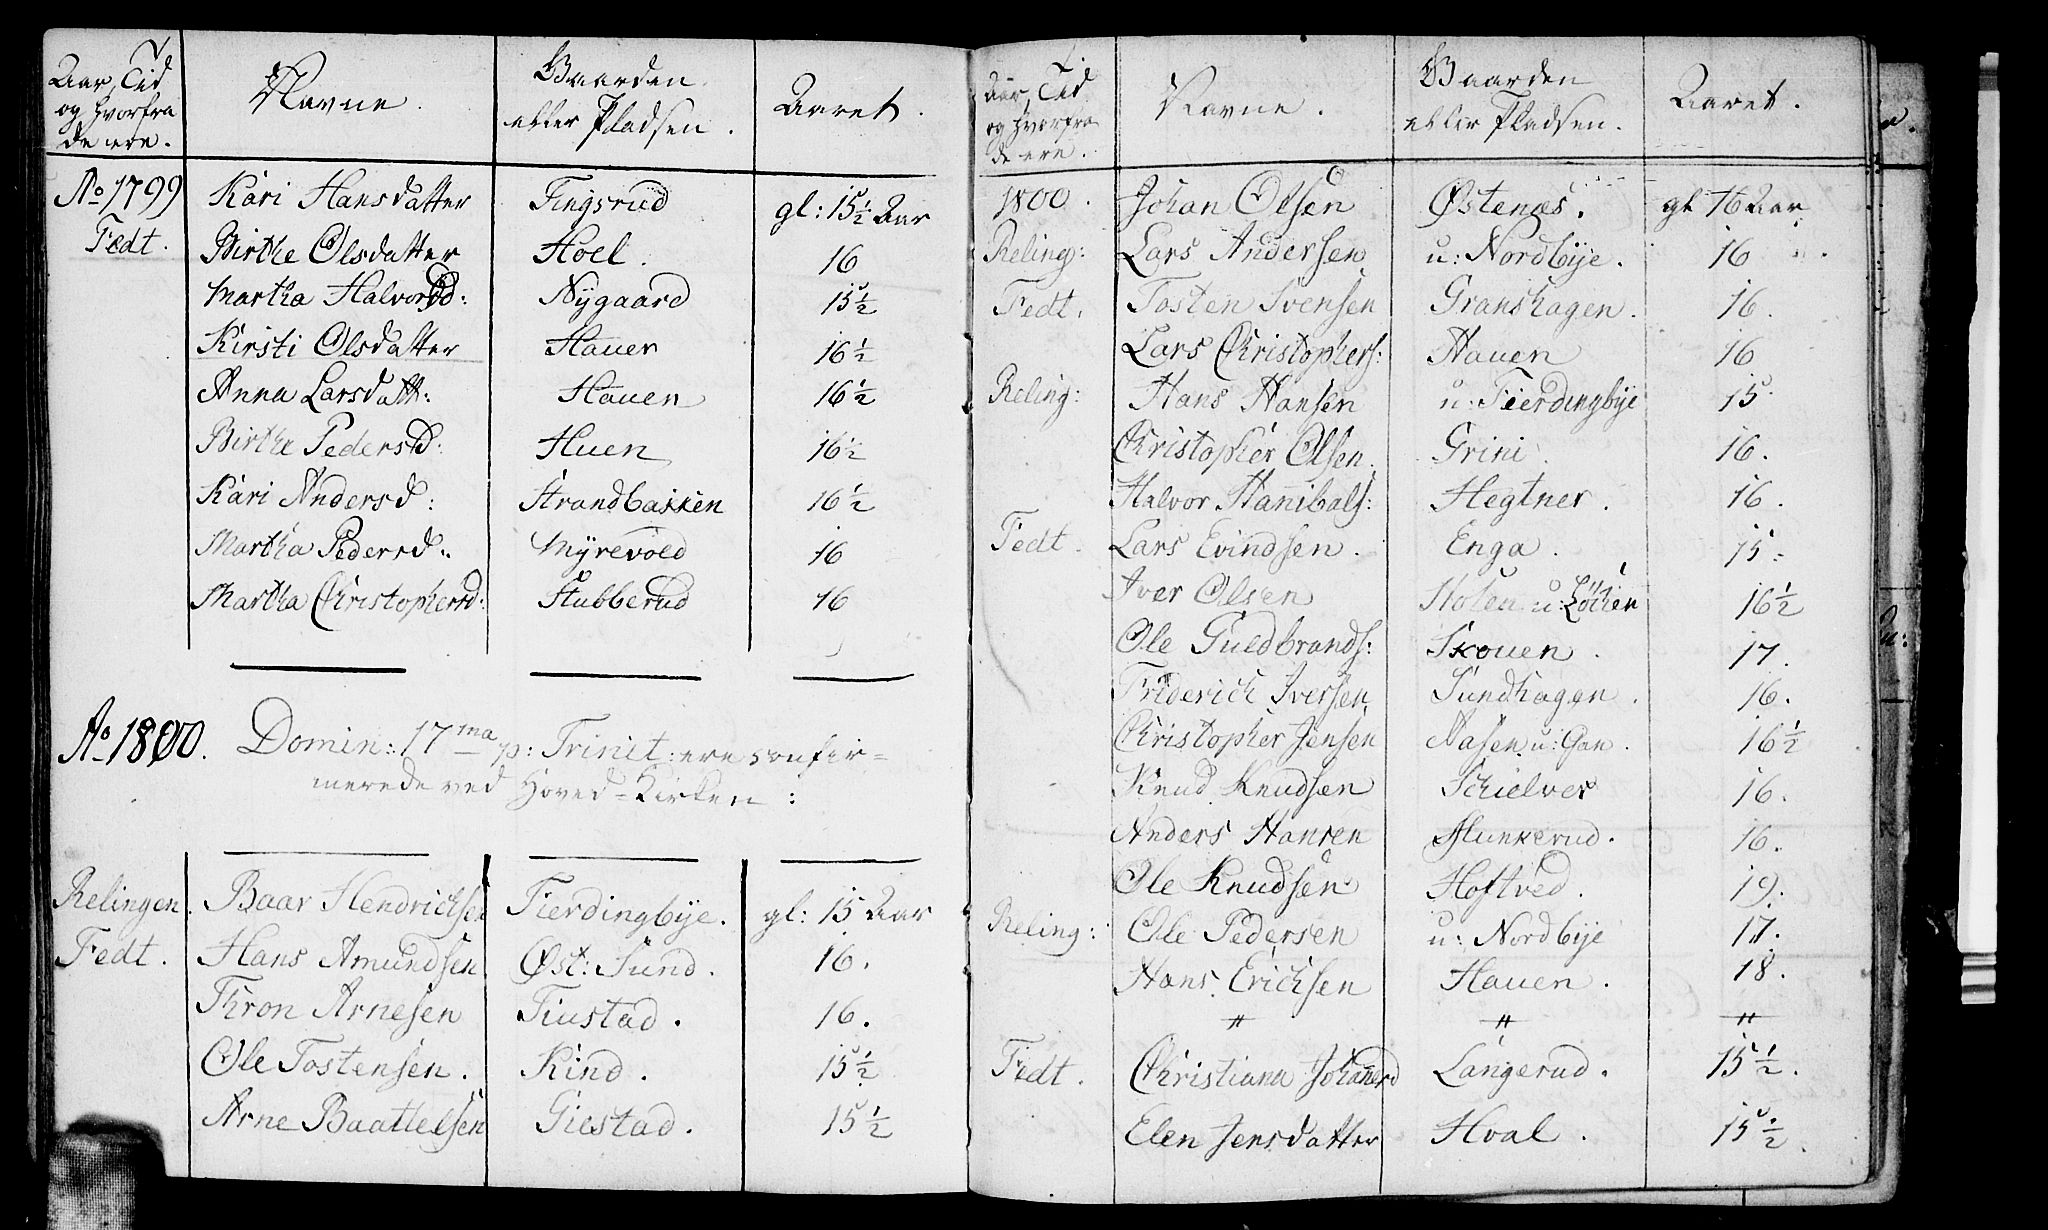 Aar, Tid og hvorfra de ere. Navne. Gaarden eller Pladsen. Aaret.
Ao 1799 Kari Hansdatter Tingsrud gl: 15½ Aar
Fedt. Birthe Olsdatter Hoel. 16
Martha Halvorsd: Nygaard 15½
Kirsti Olsdatter Hauen 16½
Anna Larsdatt: Hauen 16½
Birthe Pedersd: Huen 16½
Kari Andersd: Strandbakken 16½
Martha Pedersd: Myrevold 16
Martha Christophersd: Stubberud 16
Ao 1800. Domin: 17ma p: Trinit: ere confir-
merede ved Hoved-Kirken:
Relingen. Baar Hendrichsen Fierdingbye. gl: 15 Aar
Fedt. Hans Amundsen Øst: Sund. 16.
Thron Arnesen Tiustad. 16.
Ole Tostensen. Kind. 15½
Arne Baattelsen Giestad. 15½
Aar, Tid og hvorfra de ere. Navne. Gaarden eller Pladsen. Aaret.
1800. Johan Olsen Østenæs. gl 16 Aar
Reling: Lars Andersen u: Nordbye. 16
Fedt. Tosten Svensen Granshagen. 16.
Lars Christophers: Hauen 16
Reling: Hans Hansen u: Fierdingbye 15
Christopher Olsen Grini. 16.
Halvor Hanibals: Hegtner. 16.
Fedt. Lars Evindsen. Enga. 15:
Iver Olsen Holen u: Løken 16½
Ole Guldbrands: Skouen. 17.
Friderich Iversen Sundhagen. 16.
Christopher Jensen Aasen u: Gan. 16½
Knud Knudsen Schielver 16.
Anders Hansen Slunkerud. 16.
Ole Knudsen Hoftved. 19.
Reling: Ole Pedersen u: Nordbye 17.
Hans Erichsen Hauen. 18.
" " "
Fedt. Christiana Johansd Langerud. 15½.
Elen Jensdatter Hval. 15½.